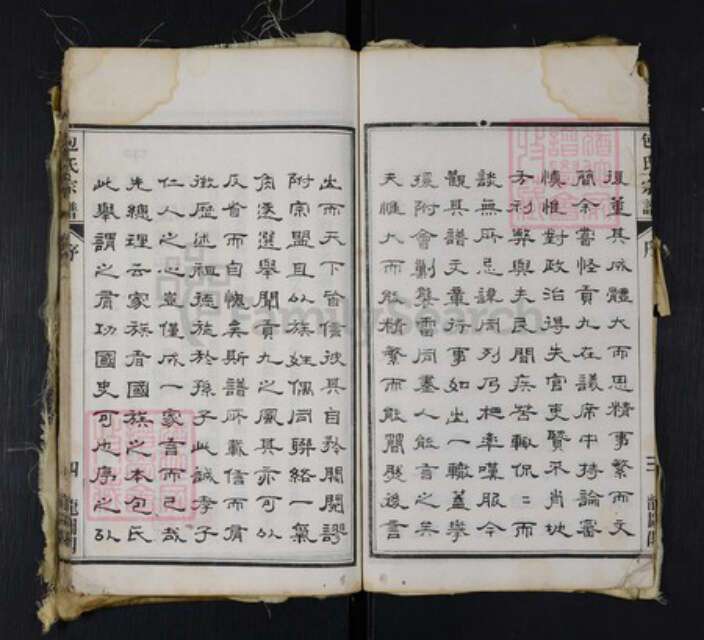 復董其成體大而思精事繁而文
簡余嘗怪貢九在議席中持論審
慎惟對政治得失官吏賢不肖地
方利弊與夫民間疾苦輒侃二而
談無所忌諱同列乃極率嘆服今
觀其譜文筆行事如出一轍蓋擧
援附會剿襲雷同盡人能言之矣
夫惟大而能精繁而能簡然後言
出而天下皆信彼具自矜閥閱謬
附宗盟且以族姓偶同聯絡一氣
自選舉聞貢九之風其亦可以
反省而自愧矣斯譜所載信而有
徵歷述祖德施於孫子此誠孝子
仁人之心豈僅成一家言而已哉
先總理云家族者國族之本包氏
此舉謂之有功國史可也序之以
包氏宗譜
序
三
包氏宗譜
序
四
龍圖閣
familysearch